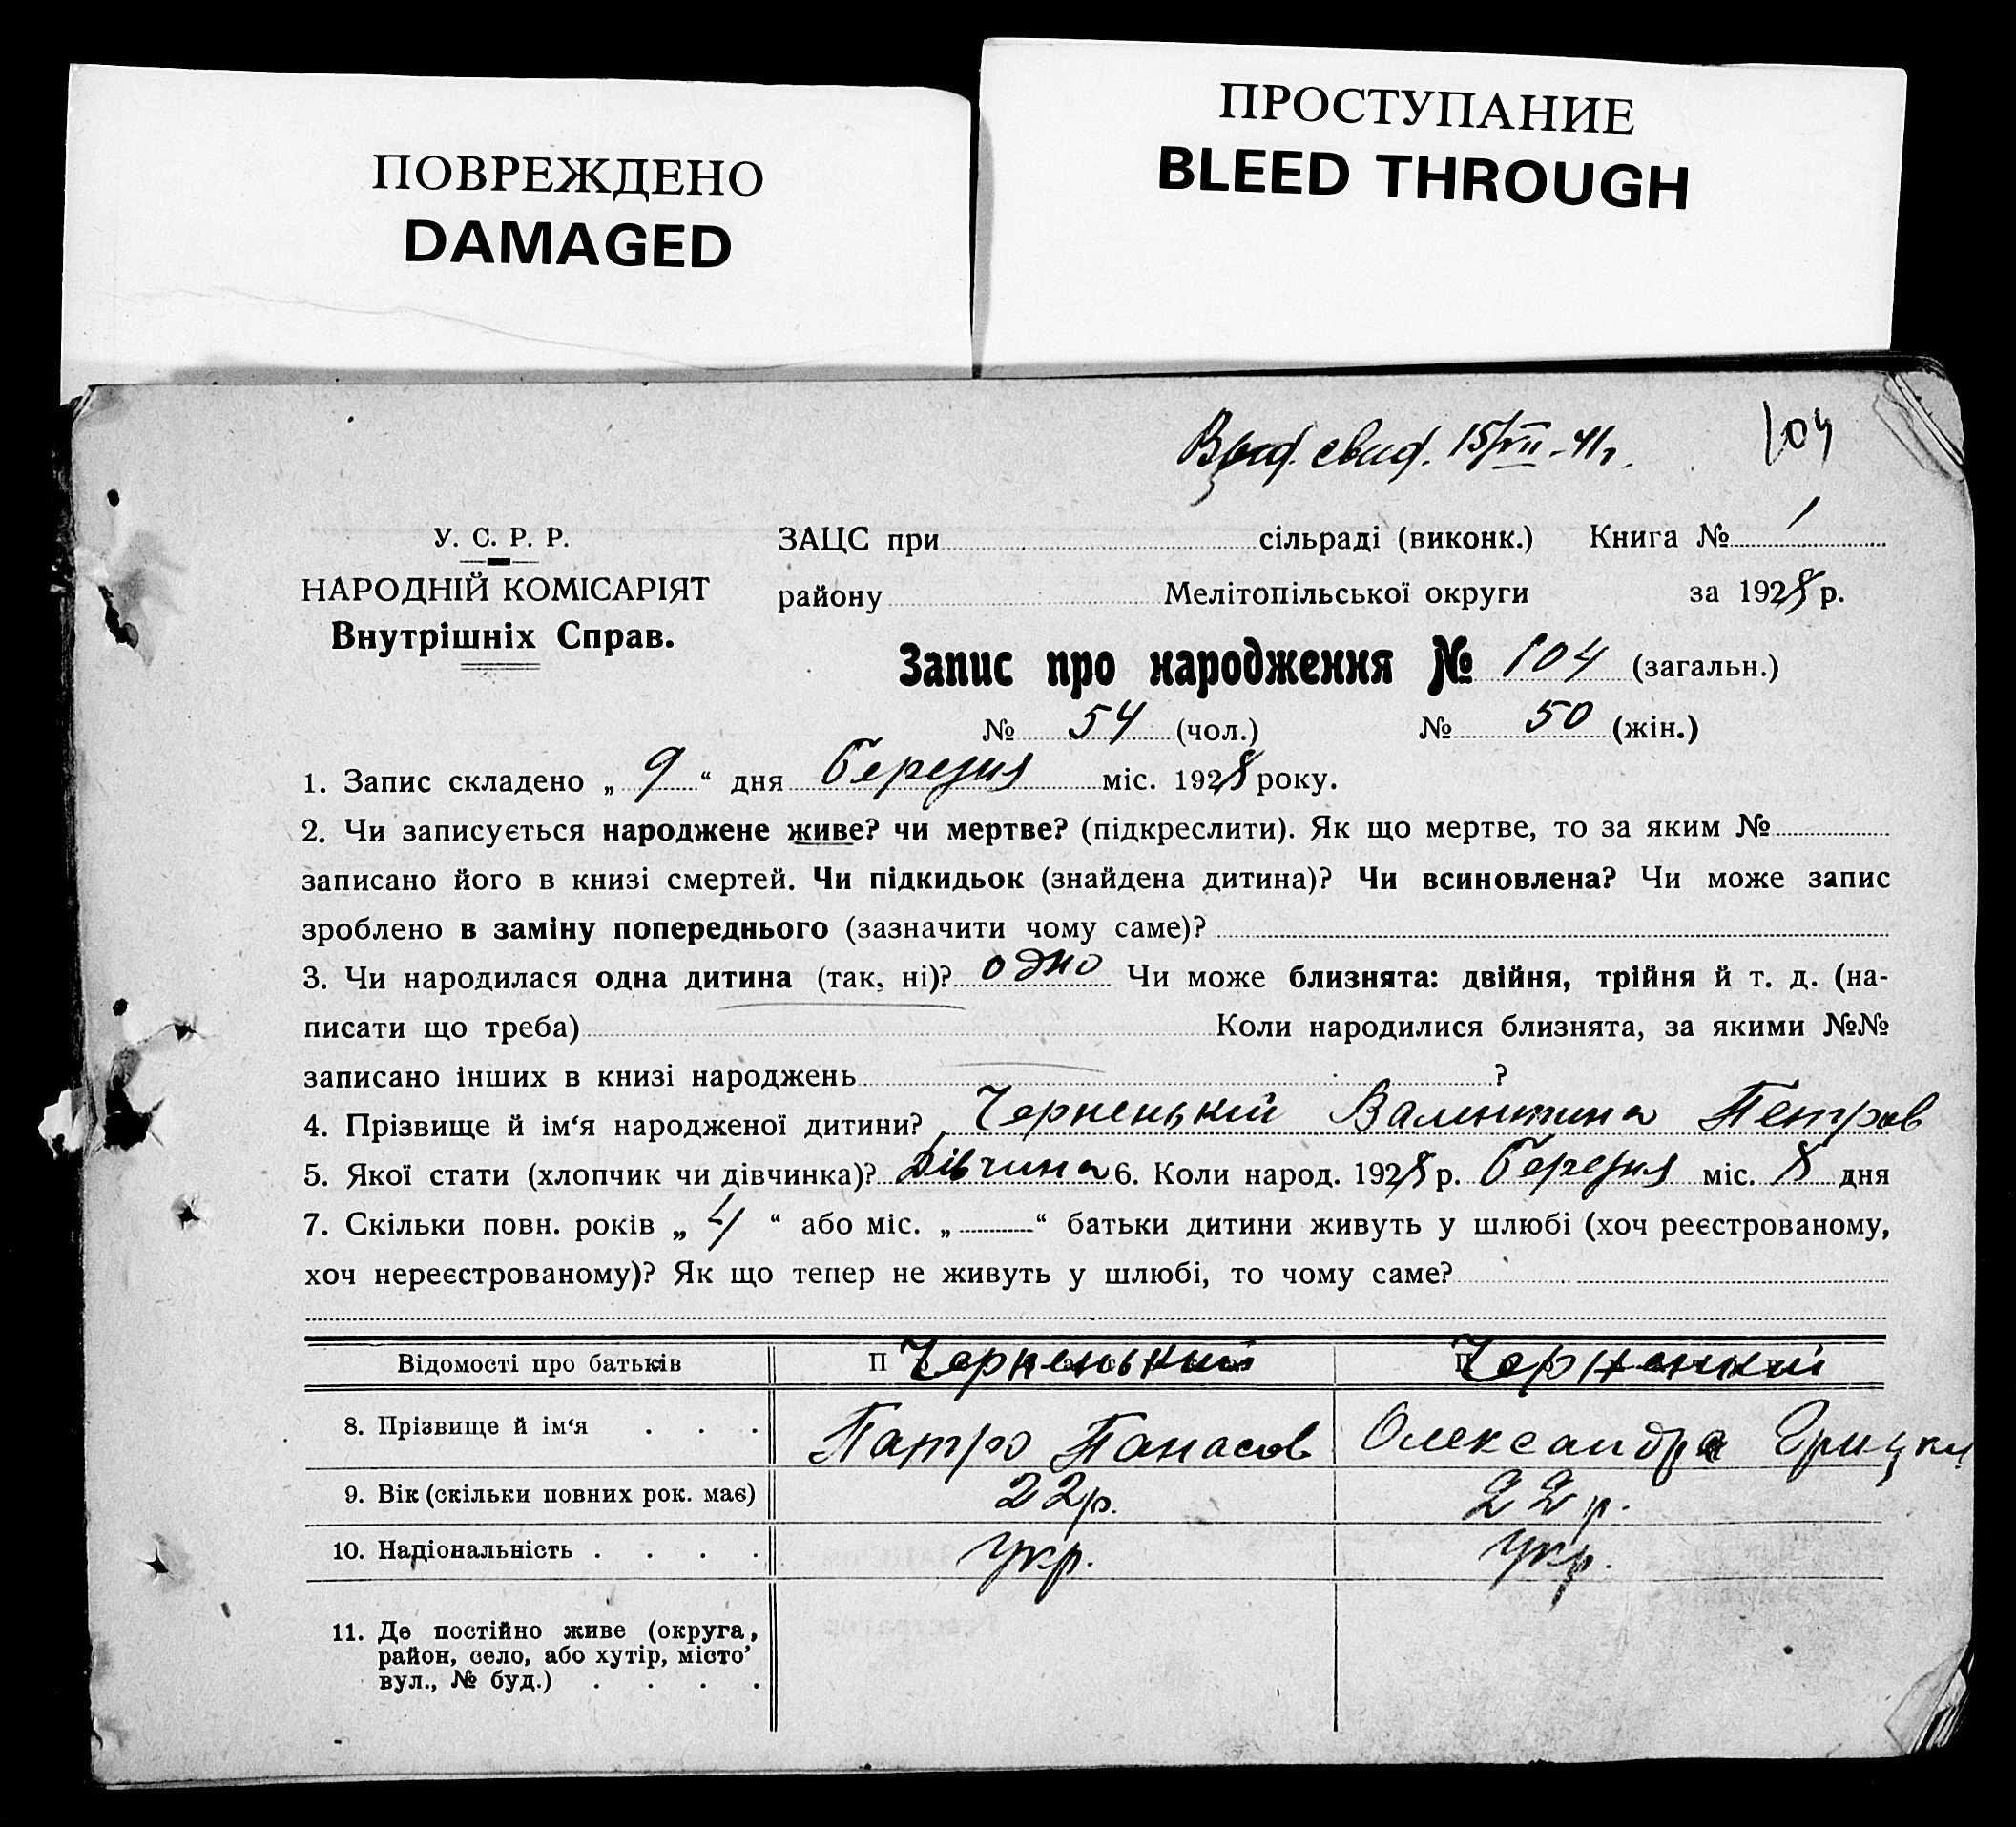 ПОВРЕЖДЕНО
DAMAGED
ПРОСТУПАНИЕ
BLEED THROUGH
свид. 15/VII-41г.
104
У. С. Р. Р.
НАРОДНІЙ КОМІСАРІЯТ
Внутрішніх Справ.
ЗАЦС при сільраді (виконк.) Книга № 1
району Мелітопільської округи за 1928 р.
Запис про народження № 104 (загальн.)
№ 54 (чол.) № 50 (жін.)
1. Запис складено „ 9 “ дня березня міс. 1928 року.
2. Чи записується народжене живе? чи мертве? (підкреслити). Як що мертве, то за яким №
записано його в книзі смертей. Чи підкидьок (знайдена дитина)? Чи всиновлена? Чи може запис
зроблено в заміну попереднього (зазначити чому саме)?
3. Чи народилася одна дитина (так, ні)? одно Чи може близнята: двійня, трійня й т. д. (на-
писати що треба) Коли народилися близнята, за якими №№
записано інших в книзі народжень ?
4. Прізвище й ім‘я народженої дитини? Черненький Валентина Петров
5. Якої стати (хлопчик чи дівчинка)? Дівчина 6. Коли народ. 1928 р. березня міс. 8 дня
7. Скільки повн. років „ 4 “ або міс. „ “ батьки дитини живуть у шлюбі (хоч реєстрованому,
хоч нереєстрованому)? Як що тепер не живуть у шлюбі, то чому саме?
Відомості про батьків Черненький Черненький
8. Прізвище й ім‘я . . . Патро Панасов Олександра
9. Вік (скільки повних рок. має) 22р. 22р.
10. Національність . . . . укр. укр.
11. Де постійно живе (округа,
район, село, або хутір, місто’
вул., № буд.) . . . .